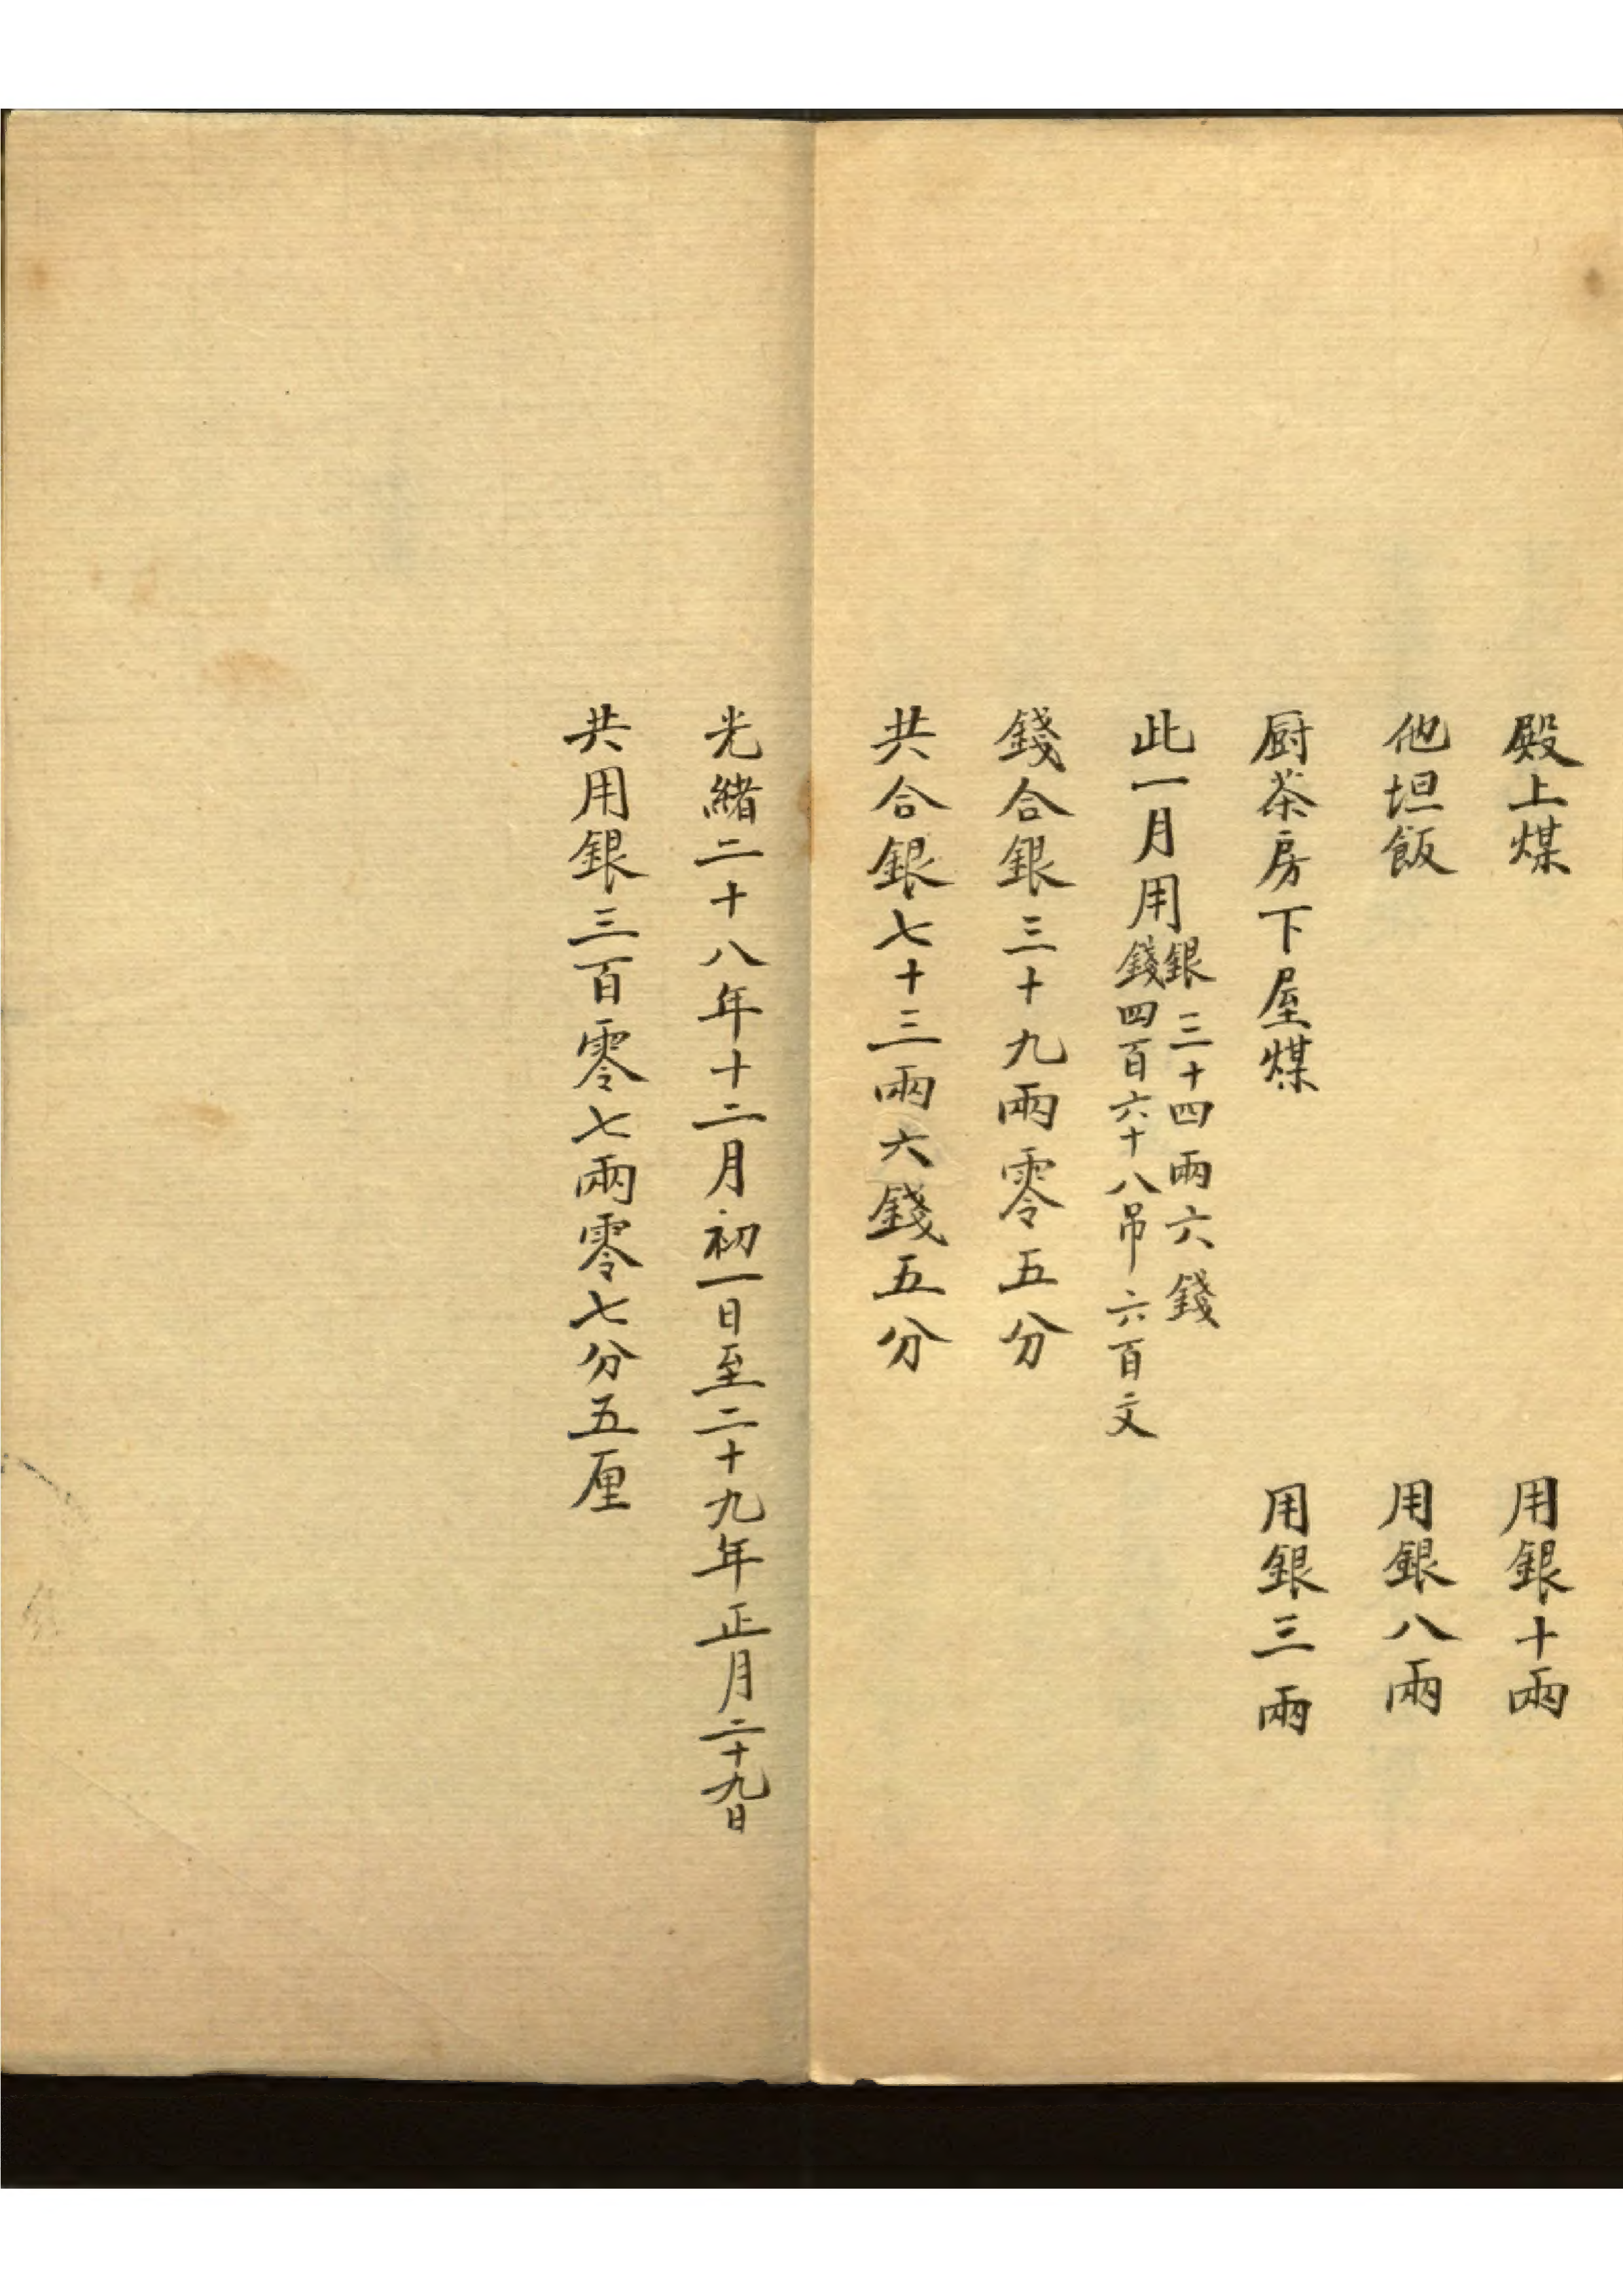 殿上煤　用銀十兩
他坦飯　用銀八兩
厨茶房下屋煤　用銀三兩
此一月用銀三十四兩六錢
錢四百六十八吊六百文
錢合銀三十九兩零五分
共合銀七十三兩六錢五分
光緒二十八年十二月初一日至二十九年正月二十九日
共用銀三百零七兩零七分五厘